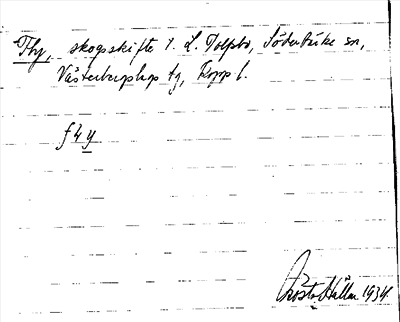 Thy, skogsskifte t. L. Tolsbo, Söderbärke sn,
Västerbergslags tg, Kopp l.
Gösta Hallen 1934.